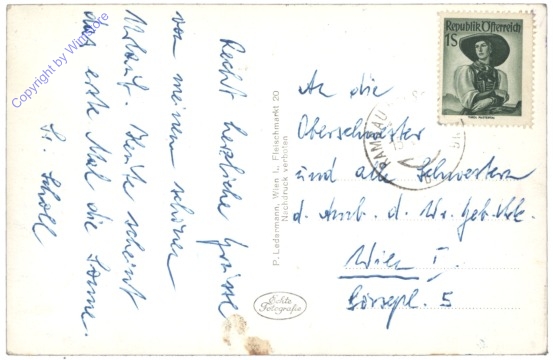 Recht herzliche Grüsse
von meinem schönen
Urlaub. Heute scheint
das erste Mal die Sonne.
Sr. Scholl
Copyright by Wiener
P. Ledermann, Wien I., Fleischmarkt 20
Nachdruck verboten
Echte
Fotografie
Republik Österreich
1S
RAMSAU
An die
Oberschwester
und alle Schwestern
d. Amb. d. Wr. Geb. Kk.
Wien I.
5